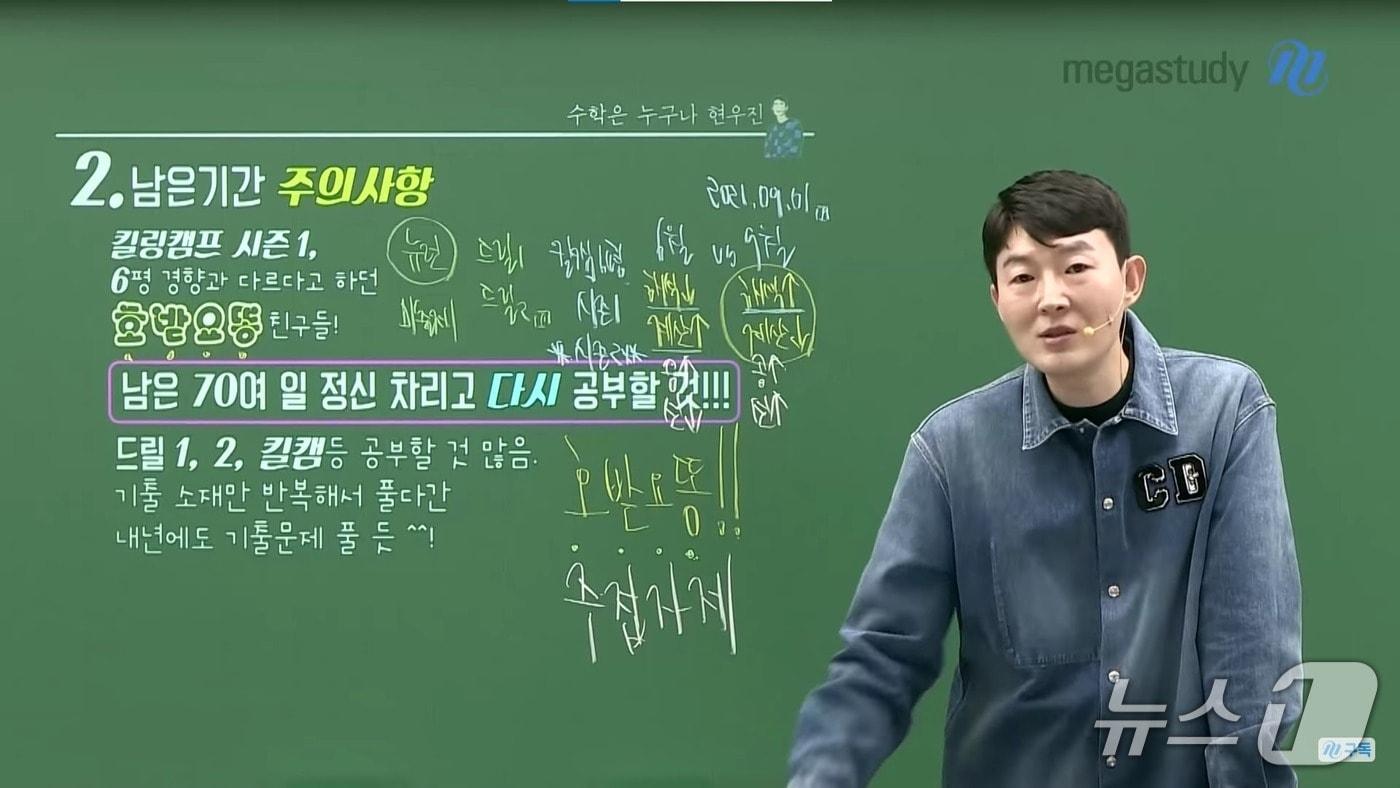 megastudy
수학은 누구나 현우진
2. 남은기간 주의사항
2021.09.01
킬링캠프 시즌1,
6평 경향과 다르다고 하던
호발요똥 친구들!
뉴런
드릴1
드릴2
6월 vs 9월
시즌1
시즌2
남은 70여 일 정신 차리고 다시 공부할 것!!!
드릴 1, 2, 킬캠등 공부할 것 많음.
기출 소재만 반복해서 풀다간
내년에도 기출문제 풀 듯 ^^!
호발요똥!!
주접자제
뉴스1
구독